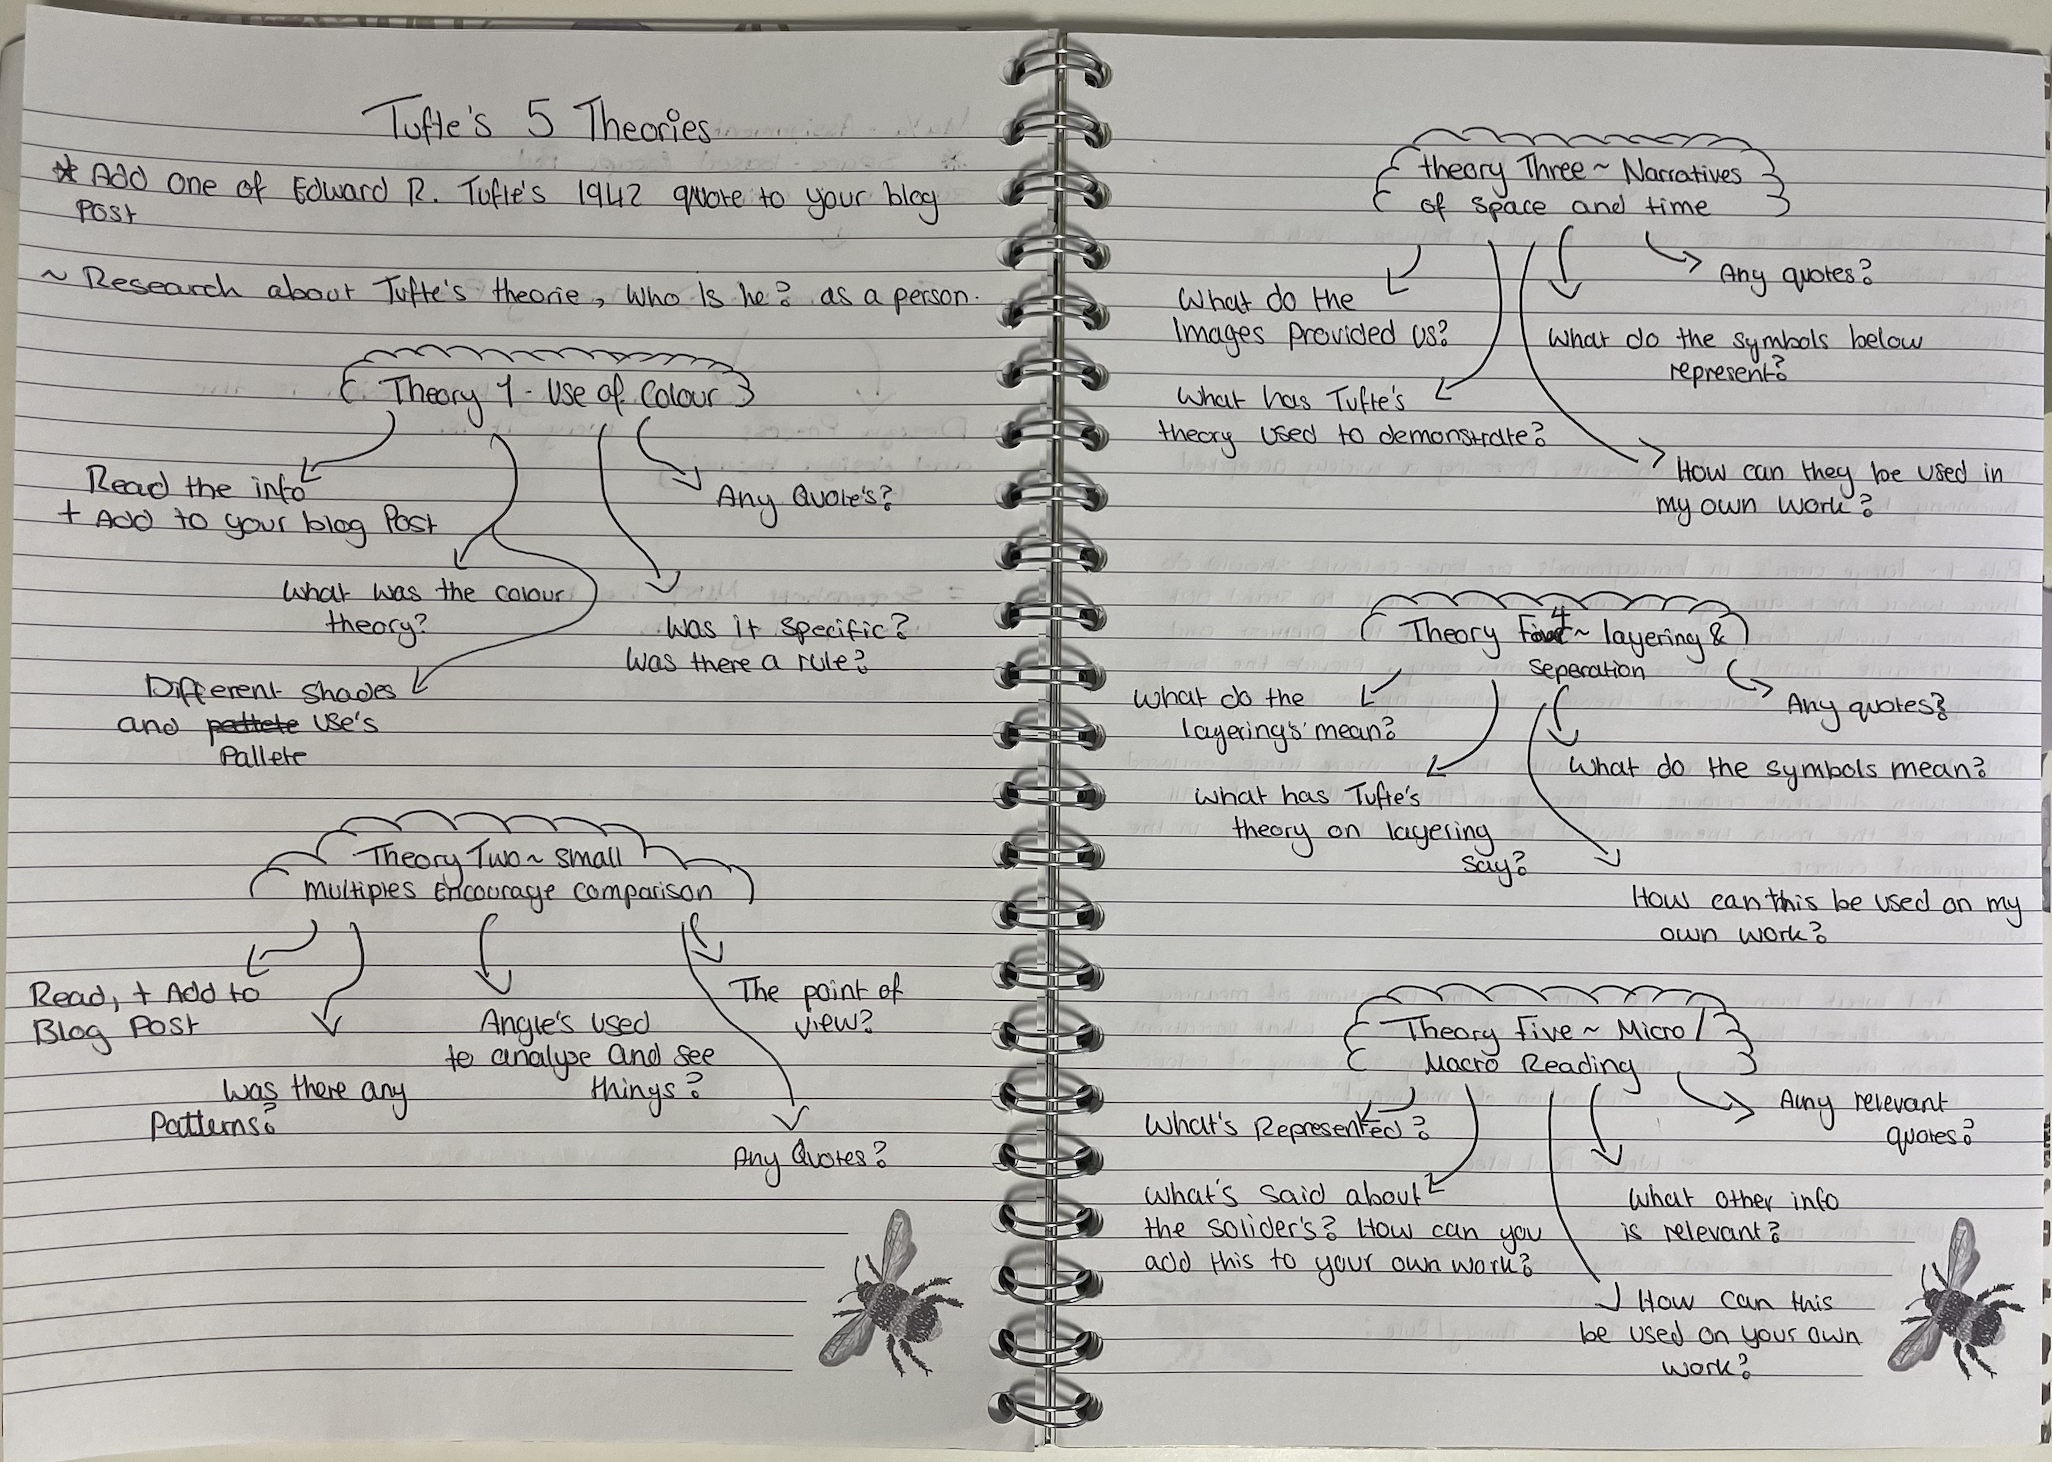 Tufte's 5 Theories
* Add one of Edward R. Tufte's 1942 quote to your blog
Post
~ Research about Tufte's theorie, Who is he? as a person.
Theory 1 - Use of Colour
Read the info
+ Add to your blog Post
Any Quote's?
What was the colour
theory?
Was it specific?
Was there a rule?
Different shades
and pallete use's
Pallete
Theory Two ~ small
multiples Encourage comparison
Read, + Add to
Blog Post
Was there any
Patterns?
Angle's used
to analyse and see
things?
The point of
view?
Any Quotes?
theory Three ~ Narratives
of space and time
Any quotes?
What do the
Images provided us?
What do the symbols below
represent?
What has Tufte's
theory used to demonstrate?
How can they be used in
my own work?
Theory 4 ~ layering &
seperation
What do the
layering's mean?
Any quotes?
What do the symbols mean?
What has Tufte's
theory on layering
say?
How can this be used on my
own work?
Theory Five ~ Micro/
Macro Reading
What's Represented?
Any relevant
quotes?
What's said about
the solider's? How can you
add this to your own work?
What other info
is relevant?
How can this
be used on your own
work?